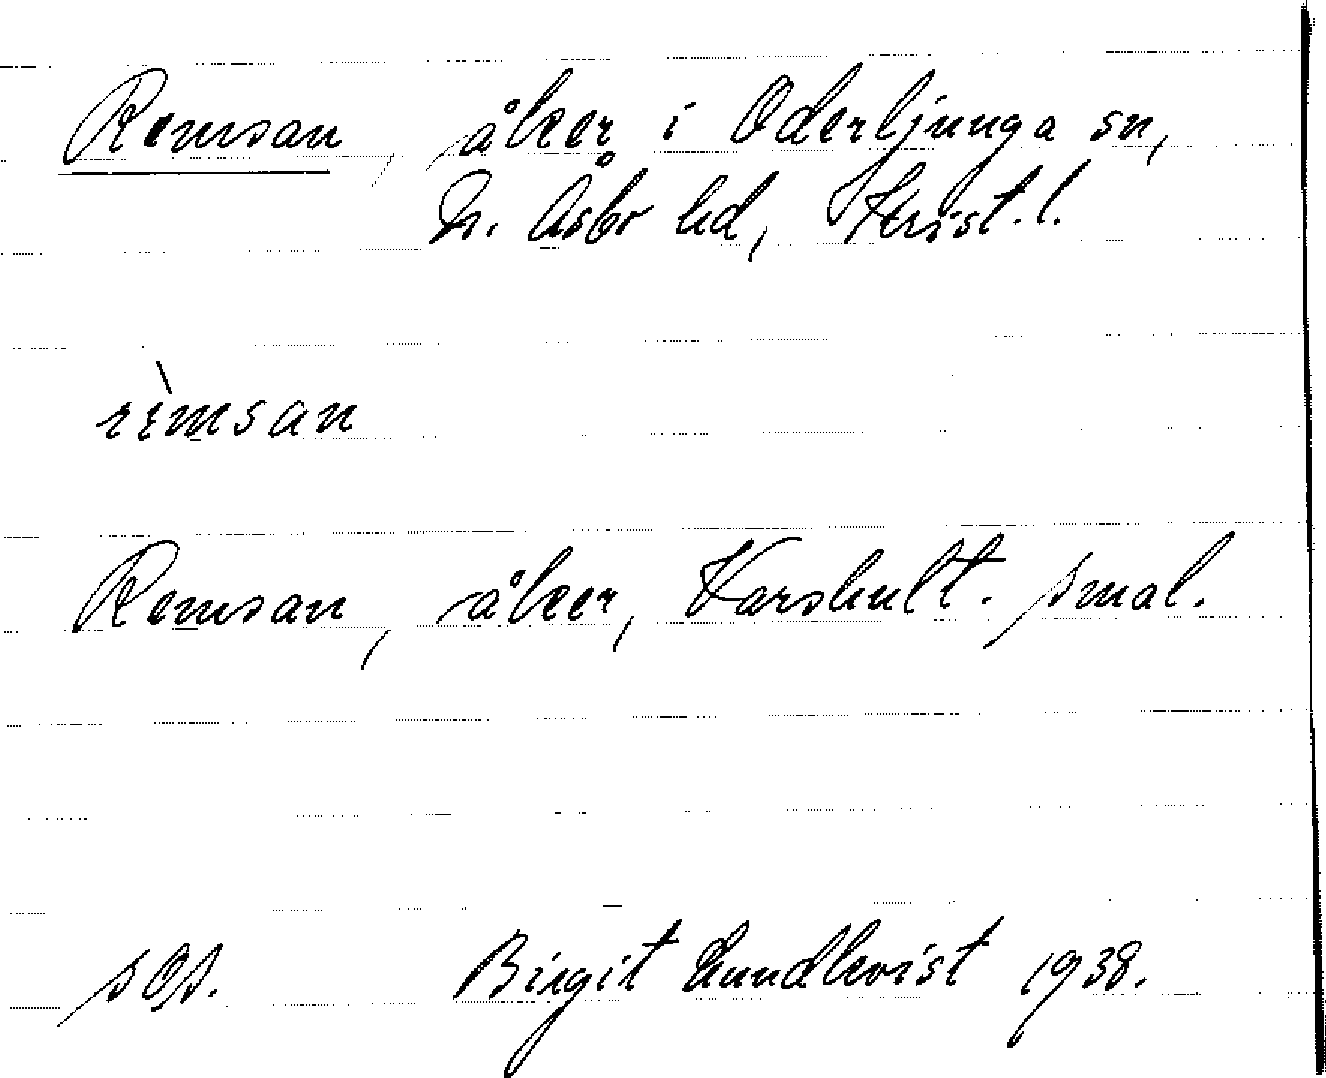 Remsan, åker i Oderljunga sn,
N. Åsbo hd, Krist. l.
rèmsan
Remsan, åker, Karshult. smal.
Birgit Lundkvist 1938.